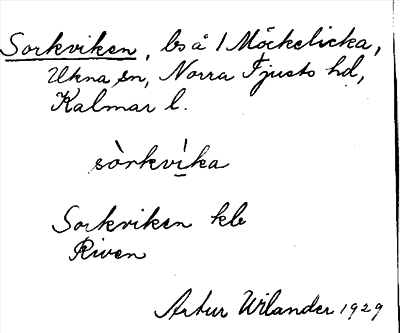 Sorkviken, lså 1 Möckelicka,
Ukna sn, Norra Tjusts hd,
Kalmar l.
sòrkvíka
Sorkviken kb
Riven
Artur Wilander 1929